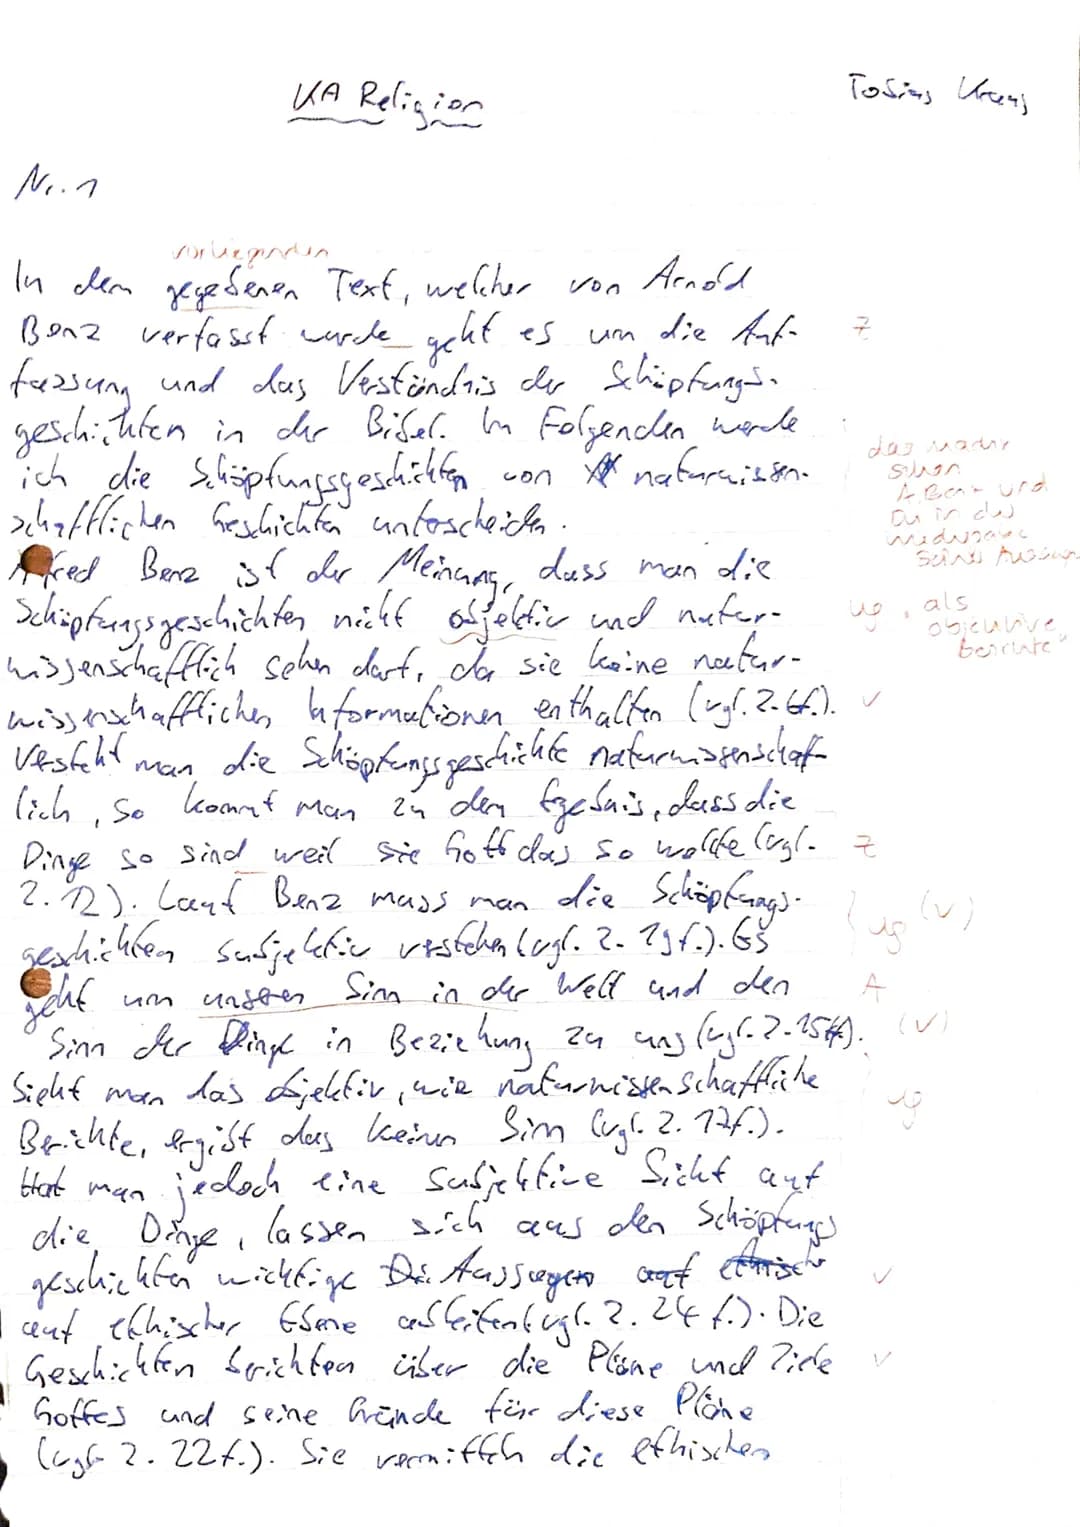 KA Religion
Tobias
Nr. 1
vorliegenden
In dem gegebenen Text, welcher von Arnold
Benz verfasst wurde geht es um die Auf-
Z
fassung und das Verständnis der Schöpfungs-
geschichten in der Bibel. Im Folgenden werde
ich die Schöpfungsgeschichten von naturwissen-
das macht
schon
A. Benz und
Du in der
Wiedergabe
seines
schafftlichen Geschichten unterscheiden.
Alfred Benz ist der Meinung, dass man die
Schöpfungsgeschichten nicht objektiv und natur-
ug, als
objektive
Berichte"
wissenschafftlich sehen darf, da sie keine natur-
wissenschafftlichen Informationen enthalten (vgl. Z. 6f.).
Versteht man die Schöpfungsgeschichte naturwissenschaf-
lich, so kommt man zu dem Ergebnis, dass die
Dinge so sind weil sie Gott das so wollte (vgl.
Z
Z. 12). Laut Benz muss man die Schöpfungs-
geschichten subjektiv verstehen (vgl. Z. 19f.). Es
ug (v)
geht um unseren Sinn in der Welt und den
A
Sinn der Dinge in Beziehung zu uns (vgl. Z. 15ff.).
(v)
Sieht man das objektiv, wie naturwissenschaffliche
ug
Berichte, ergibt das keinen Sinn (vgl. Z. 17f.).
Hat man jedoch eine subjektive Sicht auf
die Dinge, lassen sich aus den Schöpfungs
geschichten wichtige Aussagen auf ethische
auf ethischer Ebene ableiten (vgl. Z. 24 f.). Die
Geschichten berichten über die Pläne und Ziele
Gottes und seine Gründe für diese Pläne
(vgl. Z. 22f.). Sie vermitteln die ethischen